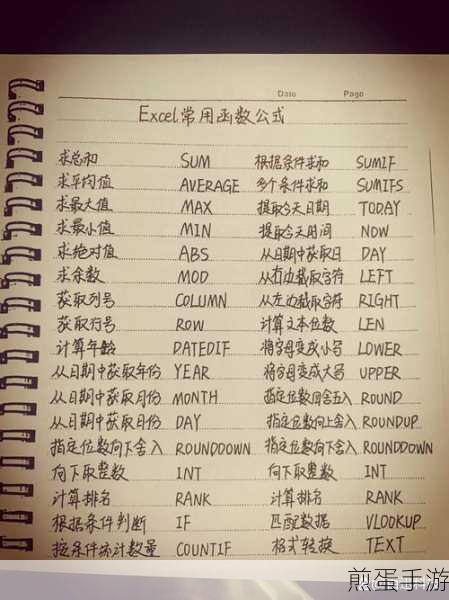 Date Page
Excel常用函数公式
求总和 SUM 根据条件求和 SUMIF
求平均值 AVERAGE 多个条件求和 SUMIFS
求最大值 MAX 提取今天日期 TODAY
求最小值 MIN 提取今天时间 NOW
求绝对值 ABS 从日期中获取日 DAY
求余数 MOD 从右边截取字符 LEFT
获取列号 COLUMN 从左边截取字符 RIGHT
获取行号 ROW 计算文本位数 LEN
计算年龄 DATEDIF 将字母变成小号 LOWER
从日期中获取年份 YEAR 将字母变成大号 UPPER
从日期中获取月份 MONTH 指定位数四舍五入 ROUND
从日期中获取日份 DAY 指定位数向上舍入 ROUNDUP
指定位数向下舍入 ROUNDDOWN 指定位数向下舍入 ROUNDDOWN
向下取整数 INT 向下取整数 INT
计算排名 RANK 计算排名 RANK
根据条件判断 IF 匹配数据 VLOOKUP
按条件统计数量 COUNTIF 格式转换 TEXT
煎蛋手游